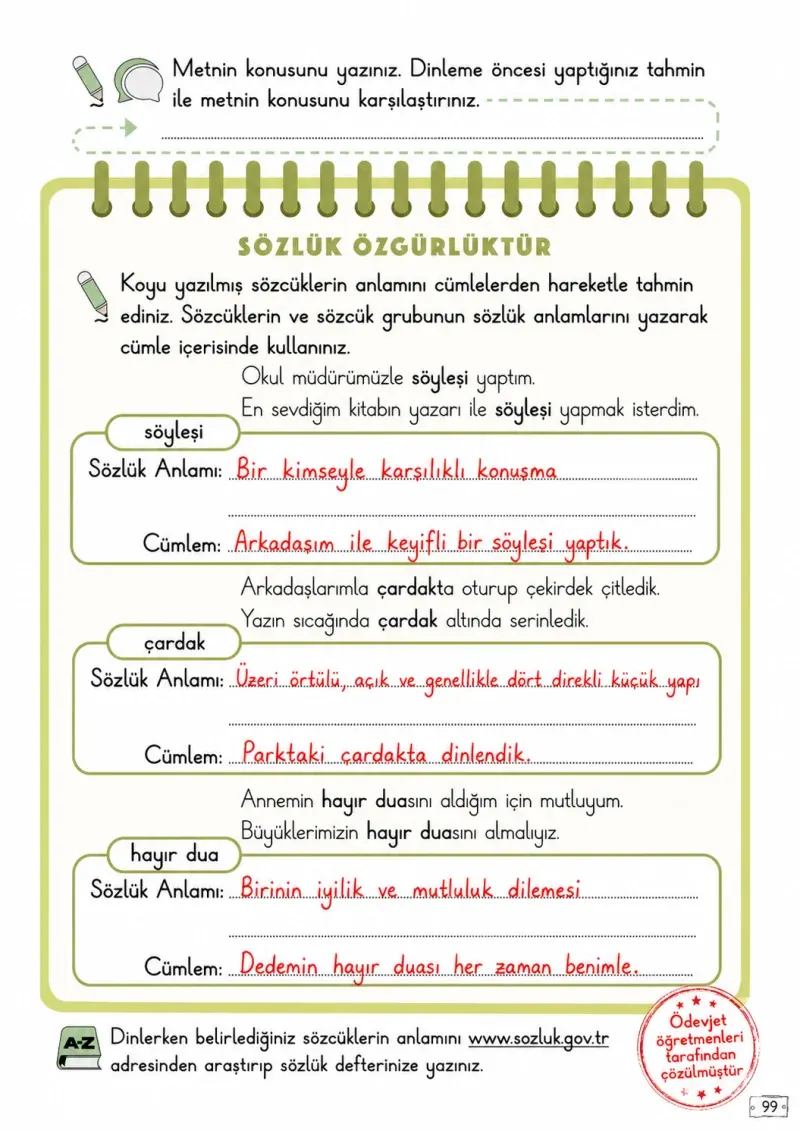 Metnin konusunu yazınız. Dinleme öncesi yaptığınız tahmin
ile metnin konusunu karşılaştırınız.
SÖZLÜK ÖZGÜRLÜKTÜR
Koyu yazılmış sözcüklerin anlamını cümlelerden hareketle tahmin
ediniz. Sözcüklerin ve sözcük grubunun sözlük anlamlarını yazarak
cümle içerisinde kullanınız.
Okul müdürümüzle söyleşi yaptım.
En sevdiğim kitabın yazarı ile söyleşi yapmak isterdim.
söyleşi
Sözlük Anlamı: Bir kimseyle karşılıklı konuşma
Cümlem: Arkadaşım ile keyifli bir söyleşi yaptık.
Arkadaşlarımla çardakta oturup çekirdek çitledik.
Yazın sıcağında çardak altında serinledik.
çardak
Sözlük Anlamı: Üzeri örtülü, açık ve genellikle dört direkli küçük yapı
Cümlem: Parktaki çardakta dinlendik.
Annemin hayır duasını aldığım için mutluyum.
Büyüklerimizin hayır duasını almalıyız.
hayır dua
Sözlük Anlamı: Birinin iyilik ve mutluluk dilemesi
Cümlem: Dedemin hayır duası her zaman benimle.
A-Z
Dinlerken belirlediğiniz sözcüklerin anlamını www.sozluk.gov.tr
adresinden araştırıp sözlük defterinize yazınız.
Ödevjet
öğretmenleri
tarafından
çözülmüştür
99